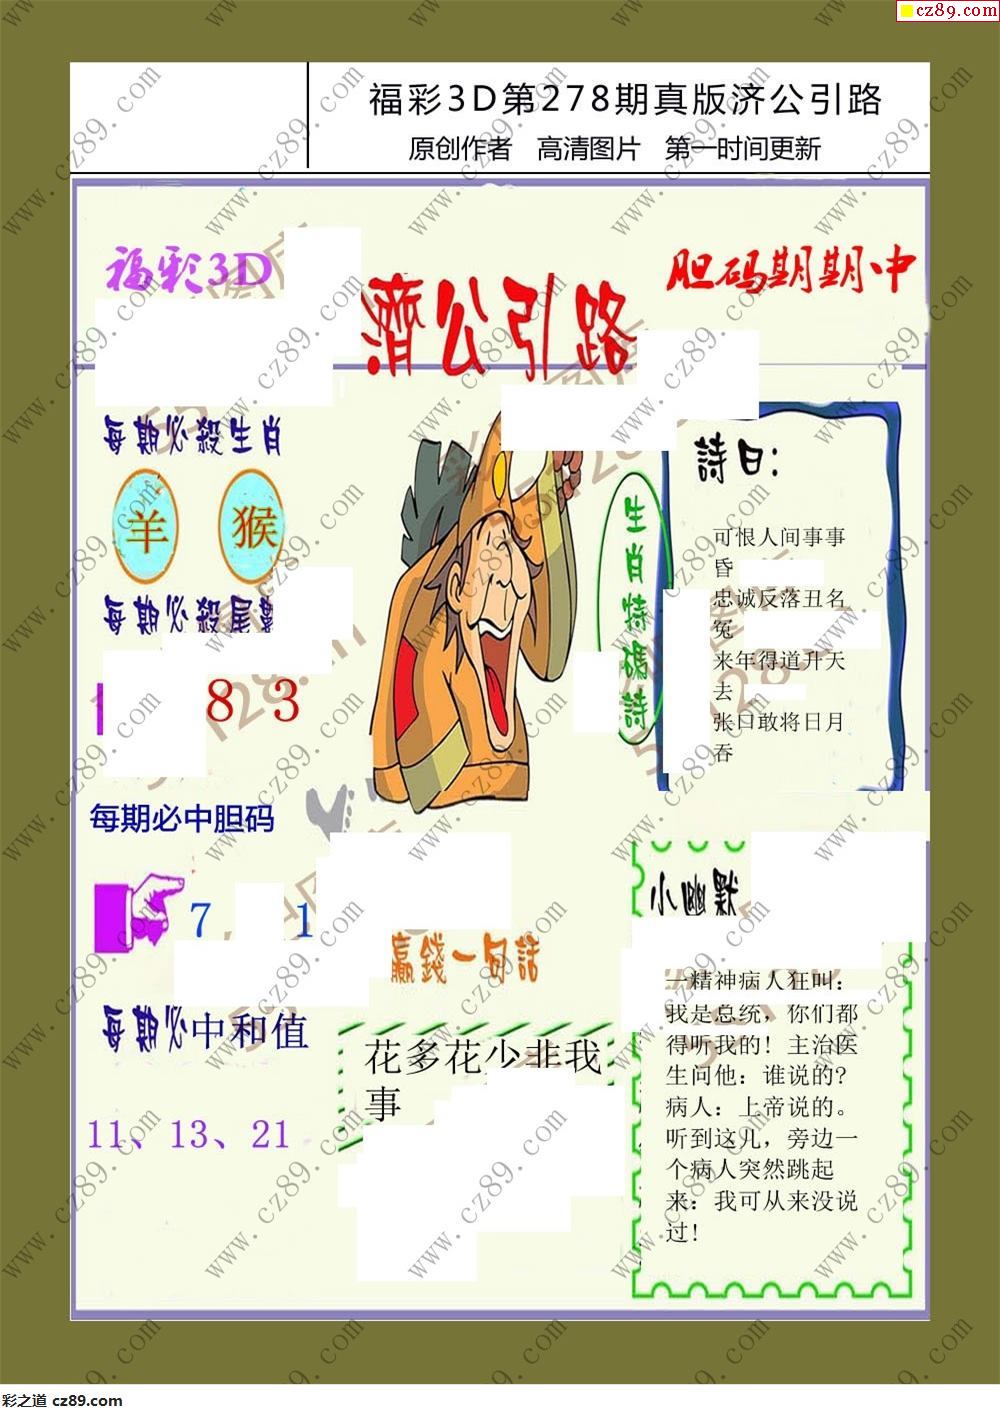 cz89.com
福彩3D第278期真版济公引路
原创作者 高清图片 第一时间更新
福彩3D
濟公引路
胆码期期中
每期必殺生肖
羊 猴
每期必殺尾數
8 3
每期必中胆码
7 1
每期必中和值
11、13、21
生肖特碼詩
詩曰:
可恨人间事事
昏
忠诚反落丑名
冤
来年得道升天
去
张口敢将日月
吞
赢錢一句話
花多花少非我
事
小幽默
一精神病人狂叫:
我是总统, 你们都
得听我的! 主治医
生问他: 谁说的?
病人: 上帝说的。
听到这儿, 旁边一
个病人突然跳起
来: 我可从来没说
过!
www.cz89.com
彩之道 cz89.com